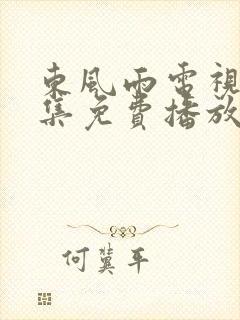 東風雨電視
集免費播放
何冀平